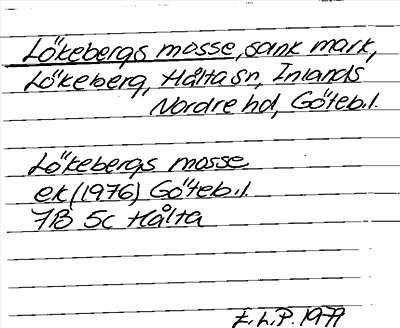 Lökebergs mosse, sank mark,
Lökeberg, Hålta sn, Inlands
Nordre hd, Göteb.l.
Lökebergs mosse
ek (1976) Göteb.l.
7B 5c Hålta
E.L.P. 1979